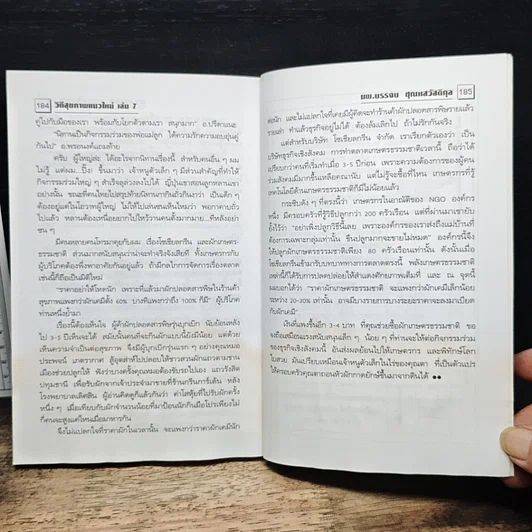 184 วิถีสุขภาพแนวใหม่ เล่ม 7
คู่ไปกับมือของเรา พร้อมกับโยกตัวตามเรา สนุกมาก" อ.ปรีดาแนะ
"นิทานเป็นกิจกรรมร่วมของพ่อแม่ลูก ได้ความรักความอบอุ่นคู่
กันไป" อ.พรอนงค์แถมท้าย
ครับ ผู้ใหญ่ล่ะ ได้อะไรจากนิทานเรื่องนี้ สำหรับคนอื่น ๆ ผม
ไม่รู้ แต่ผม...ปิ๊ง! ขึ้นมาว่า เจ้าหนูตัวเล็ก ๆ มีส่วนสำคัญที่ทำให้
กิจกรรมร่วมใหญ่ ๆ สำเร็จลุล่วงลงไปได้ ญี่ปุ่นเขาสอนลูกหลานเขา
อย่างนั้น ขณะที่คนไทยไปสรุปท้ายนิทานนากินถั่วกันว่า เป็นเด็ก ๆ
ต้องอยู่แต่ในโอวาทผู้ใหญ่ ไม่ให้ไปเล่นซนเห็นไหมว่า พอกาคาบถั่ว
ไปแล้ว หลานต้องเหนื่อยยากไปให้หวานคนตั้งมากมาย...ทีหลังอย่า
ซน ๆ
มีคนหลายคนโทรมาคุยกับผม เรื่องโซเชียลกรีน และผักเกษตร-
ธรรมชาติ ส่วนมากสนับสนุนว่าน่าจะทำจริงจังเสียที ทั้งเกษตรกรกับ
ผู้บริโภคต้องพึ่งพาอาศัยกันอยู่แล้ว ถ้ามีกลไกการจัดการเรื่องตลาด
เช่นนี้ก็ถือเป็นมิติใหม่
"ราคาอย่าให้โหดนัก เพราะที่แล้วมาผักปลอดสารพิษในร้านค้า
สุขภาพแพงกว่าผักเคมีตั้ง 60% บางทีแพงกว่าถึง 100% ก็มี" ผู้บริโภค
ท่านหนึ่งย้ำมา
เรื่องนี้ต้องเห็นใจ ผู้ค้าผักปลอดสารพิษรุ่นบุกเบิก นับย้อนหลัง
ไป 3-5 ปีเห็นจะได้ สมัยนั้นคนที่จะไปกินผักแบบนี้ยังมีน้อย แต่ด้วย
เห็นความจำเป็นต่อสุขภาพ จึงมีผู้บุกเบิกรุ่นแรก ๆ อย่างคุณหมอ
ประพจน์ เภตรากาศ สู้อุตส่าห์ไปปล่อยให้ชาวสวนผักแถวตามชาน
เมืองช่วยปลูกให้ ฟังว่าบางครั้งคุณหมอต้องขับรถไปเอง แถวรังสิต
ปทุมธานี เพื่อรับผักจากเจ้าประจำมาขายที่ร้านกรีนการ์เด้น หลัง
โรงพยาบาลเลิดสิน ผู้อ่านคิดดูก็แล้วกันว่า ค่าโสหุ้ยที่ไปรับผักครั้ง
หนึ่ง ๆ เมื่อเทียบกับผักจำนวนน้อยที่มาป้อนนักกินเมื่อไปรเพียงไม่
กี่คนจะสูงแค่ไหนเมื่อมาหารกัน
จึงไม่แปลกใจที่ราคาผักในเวลานั้น จะแพงกว่าราคาผักเคมีนัก
นพ.บรรจบ ชุณหสวัสดิกุล 185
ต่อนัก และไม่แปลกใจที่เคยมีผู้คิดจะทำร้านค้าผักปลอดสารพิษรายแล้ว
รายเล่า ทำแล้วธุรกิจอยู่ไม่ได้ ต้องล้มเลิกไป ถ้าไม่รักกันจริง
แต่สำหรับบริษัท โซเชียลกรีน จำกัด เราเรียกตัวเองว่า เป็น
บริษัทธุรกิจเชิงสังคม การทำตลาดเกษตรธรรมชาติเวลานี้ ถือว่าได้
เปรียบกว่าคนที่เริ่มทำเมื่อ 3-5 ปีก่อน เพราะความต้องการของผู้คน
ร่วมสังคมมีมากขึ้นเหลือคณานับ แต่ไม่รู้จะซื้อที่ไหน เกษตรกรที่รู้
เทคโนโลยีด้านเกษตรธรรมชาติก็มีไม่น้อยแล้ว
กระซิบดัง ๆ ที่ตรงนี้ว่า เกษตรกรในอาณัติของ NGO องค์กร
หนึ่ง มีครอบครัวที่รู้วิธีปลูกกว่า 200 ครัวเรือน แต่ที่ผ่านมาเขายับ
ยั้งไว้ว่า "อย่าเพิ่งปลูกวิธีนี้เลย เพราะองค์กรของเราส่งถึงแม่บ้านที่
ต้องการเฉพาะกลุ่มเท่านั้น ขืนปลูกมากจะขายไม่หมด" องค์กรนี้จึง
ให้ปลูกผักเกษตรธรรมชาติเพียง 80 ครัวเรือนเท่านั้น ดังนั้นเมื่อ
โซเชียลกรีนเข้ามารับบทบาททางการตลาดตรงนี้ พลังเกษตรกร
เหล่านี้ก็ได้รับการปลดปล่อยให้สำแดงศักยภาพเต็มที่ และ ณ จุดนี้
ผมบอกได้ว่า "ราคาผักเกษตรธรรมชาติ จะแพงกว่าผักเคมีเล็กน้อย
ระหว่าง 20-30% เท่านั้น อาจมีบางรายการบางระยะราคาจะลงมาเบียด
กับผักเคมี"
เงินที่แพงขึ้นอีก 3-4 บาท ที่คุณช่วยซื้อผักเกษตรธรรมชาติ ขอ
จงถือเสมือนแรงสนับสนุนเล็ก ๆ น้อย ๆ ที่ท่านจะให้ต่อกิจกรรมร่วม
ของธุรกิจเชิงสังคมนี้ อันส่งผลย้อนไปให้เกษตรกร และพิทักษ์โลก
ใบสวย มันเปรียบเหมือนเจ้าหนูตัวเล็กในไร่ของคุณตา ที่เป็นตัวแปร
ให้ครอบครัวคุณตาถอนหัวผักกาดยักษ์ขึ้นมาจากดินได้ ●●